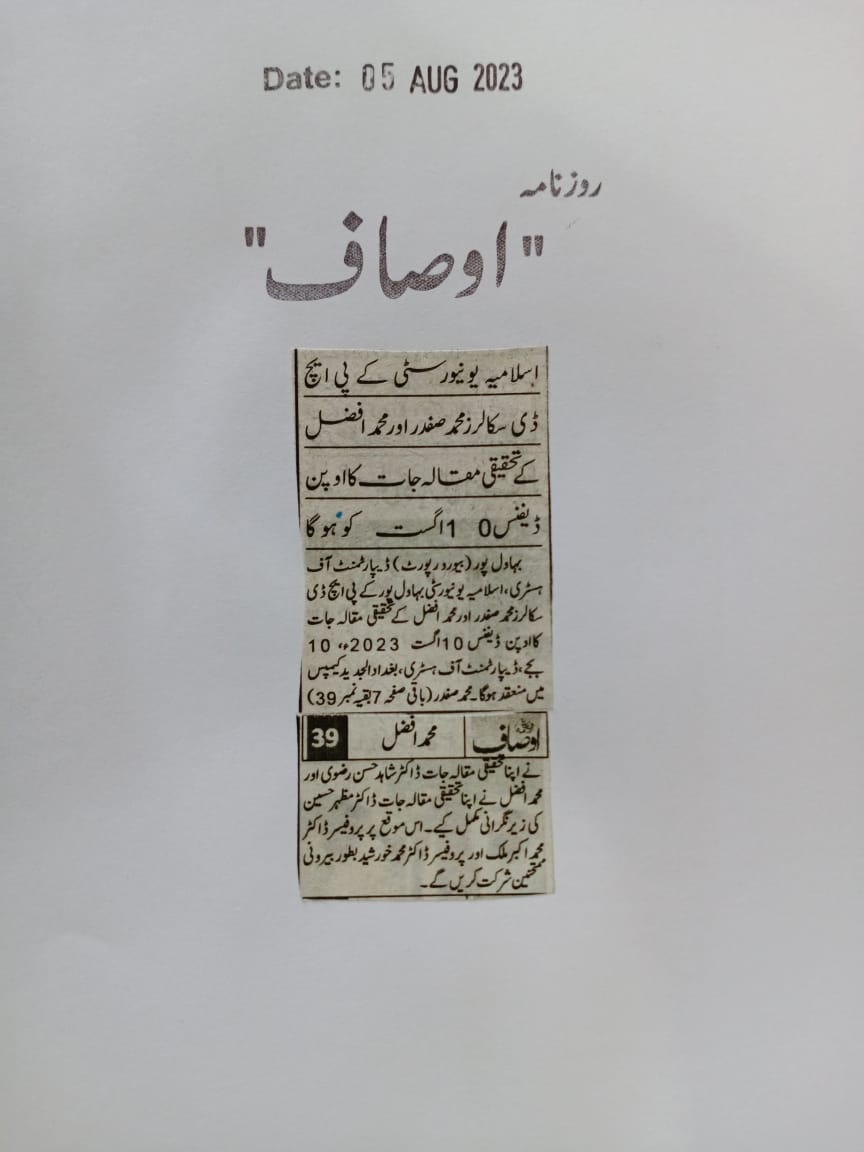 Date: 05 AUG 2023
روزنامہ
"اوصاف"
اسلامیہ یونیورسٹی کے پی ایچ
ڈی سکالرز محمد صفدر اور محمد افضل
کے تحقیقی مقالہ جات کا اوپن
ڈیفنس 10 اگست کو ہو گا
بہاول پور (بیورو رپورٹ) ڈیپارٹمنٹ آف
ہسٹری، اسلامیہ یونیورسٹی بہاول پور کے پی ایچ ڈی
سکالرز محمد صفدر اور محمد افضل کے تحقیقی مقالہ جات
کا اوپن ڈیفنس 10 اگست 2023ء، 10
بجے، ڈیپارٹمنٹ آف ہسٹری، بغداد الجدید کیمپس
میں منعقد ہوگا۔ محمد صفدر (باقی صفحہ 7 بقیہ نمبر 39)
اوصاف محمد افضل 39
نے اپنا تحقیقی مقالہ جات ڈاکٹر شاہد حسن رضوی اور
محمد افضل نے اپنا تحقیقی مقالہ جات ڈاکٹر مظہر حسین
کی زیر نگرانی مکمل کیے۔ اس موقع پر پروفیسر ڈاکٹر
محمد اکبر ملک اور پروفیسر ڈاکٹر محمد خورشید بطور بیرونی
ممتحنین شرکت کریں گے۔